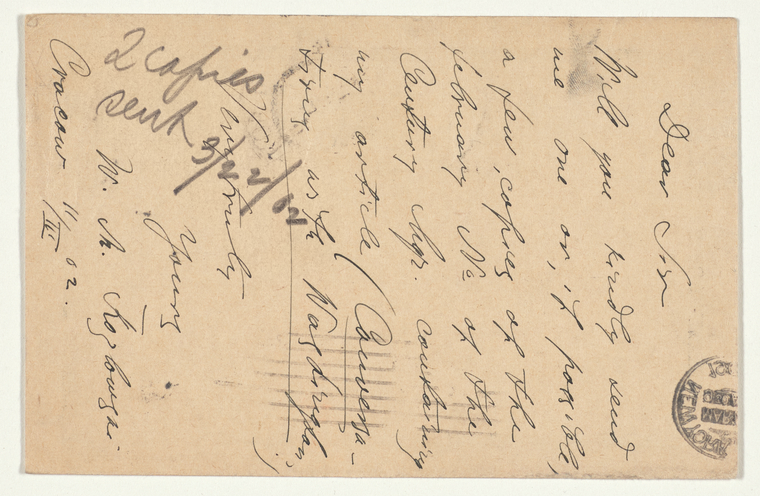 Dear Sir
Will you kindly send
me one or, if possible,
a few copies of the
february No of the
Century Mgz. containing
my article (Conversa-
tions as to Washington)
truly
Yours
W. M. Kozlowski
Cracow 11/III 02.
2 copies
sent
3/22/02
NEW YO